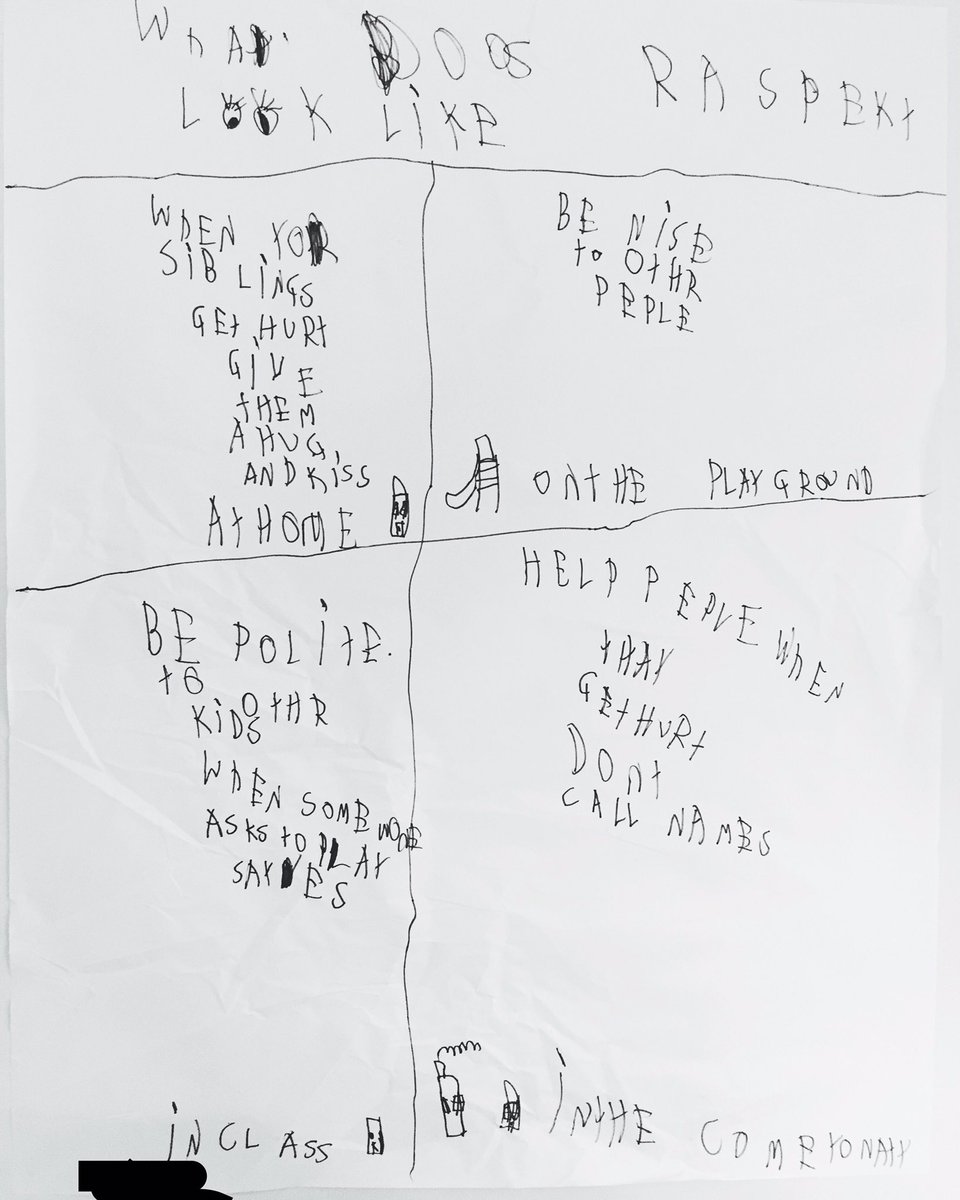 WhAt DOOS RASPEKt
LOOK LiKE
WhEN YOR
SiBLiNGS
GEt HURt
GiVE
tHEM
A HUG,
AND KiSS
At HOME
BE NiSE
to OtHR
PEPLE
ON tHE PLAYGROUND
BE POLitE.
tO OtHR
KiDS
WhEN SOMEWONE
ASKS tO PLAY
SAY YES
iN CLASS
HELP PEPLE WhEN
tHAY
GEt HURt
DONt
CALL NAMES
iN tHE COMEYONATY